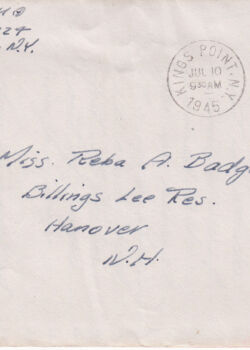 N.Y.
KINGS POINT. N.Y.
JUL 10
9 30 AM
1945
Miss. Reba A. Badg
Billings Lee Res.
Hanover
N.H.